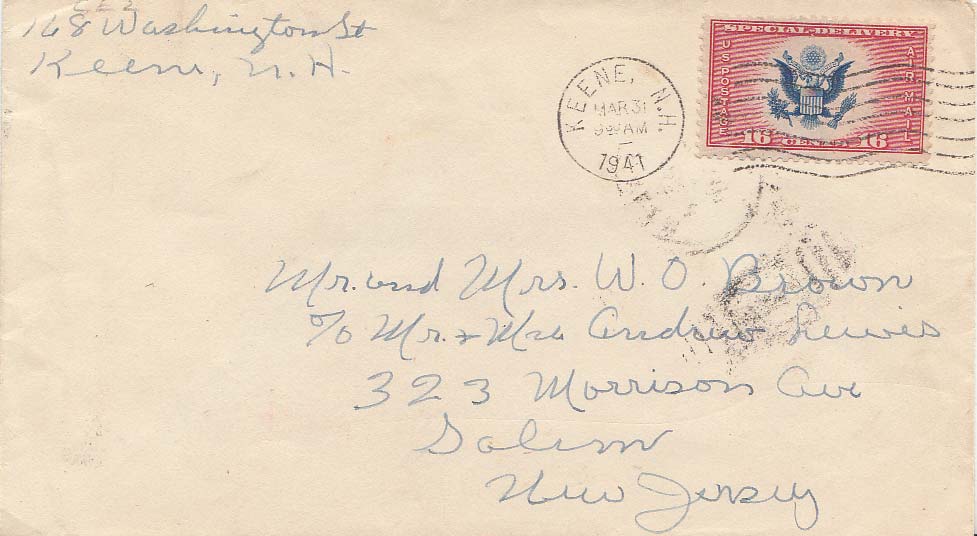 168 Washington St
Keene, N. H.
KEENE, N.H.
MAR 31
9 AM
1941
SPECIAL DELIVERY
U S POSTAGE
AIR MAIL
16 CENTS 16
Mr. and Mrs. W. O. Brown
c/o Mr. + Mrs Andrew Lewis
323 Morrison Ave
Salem
New Jersey